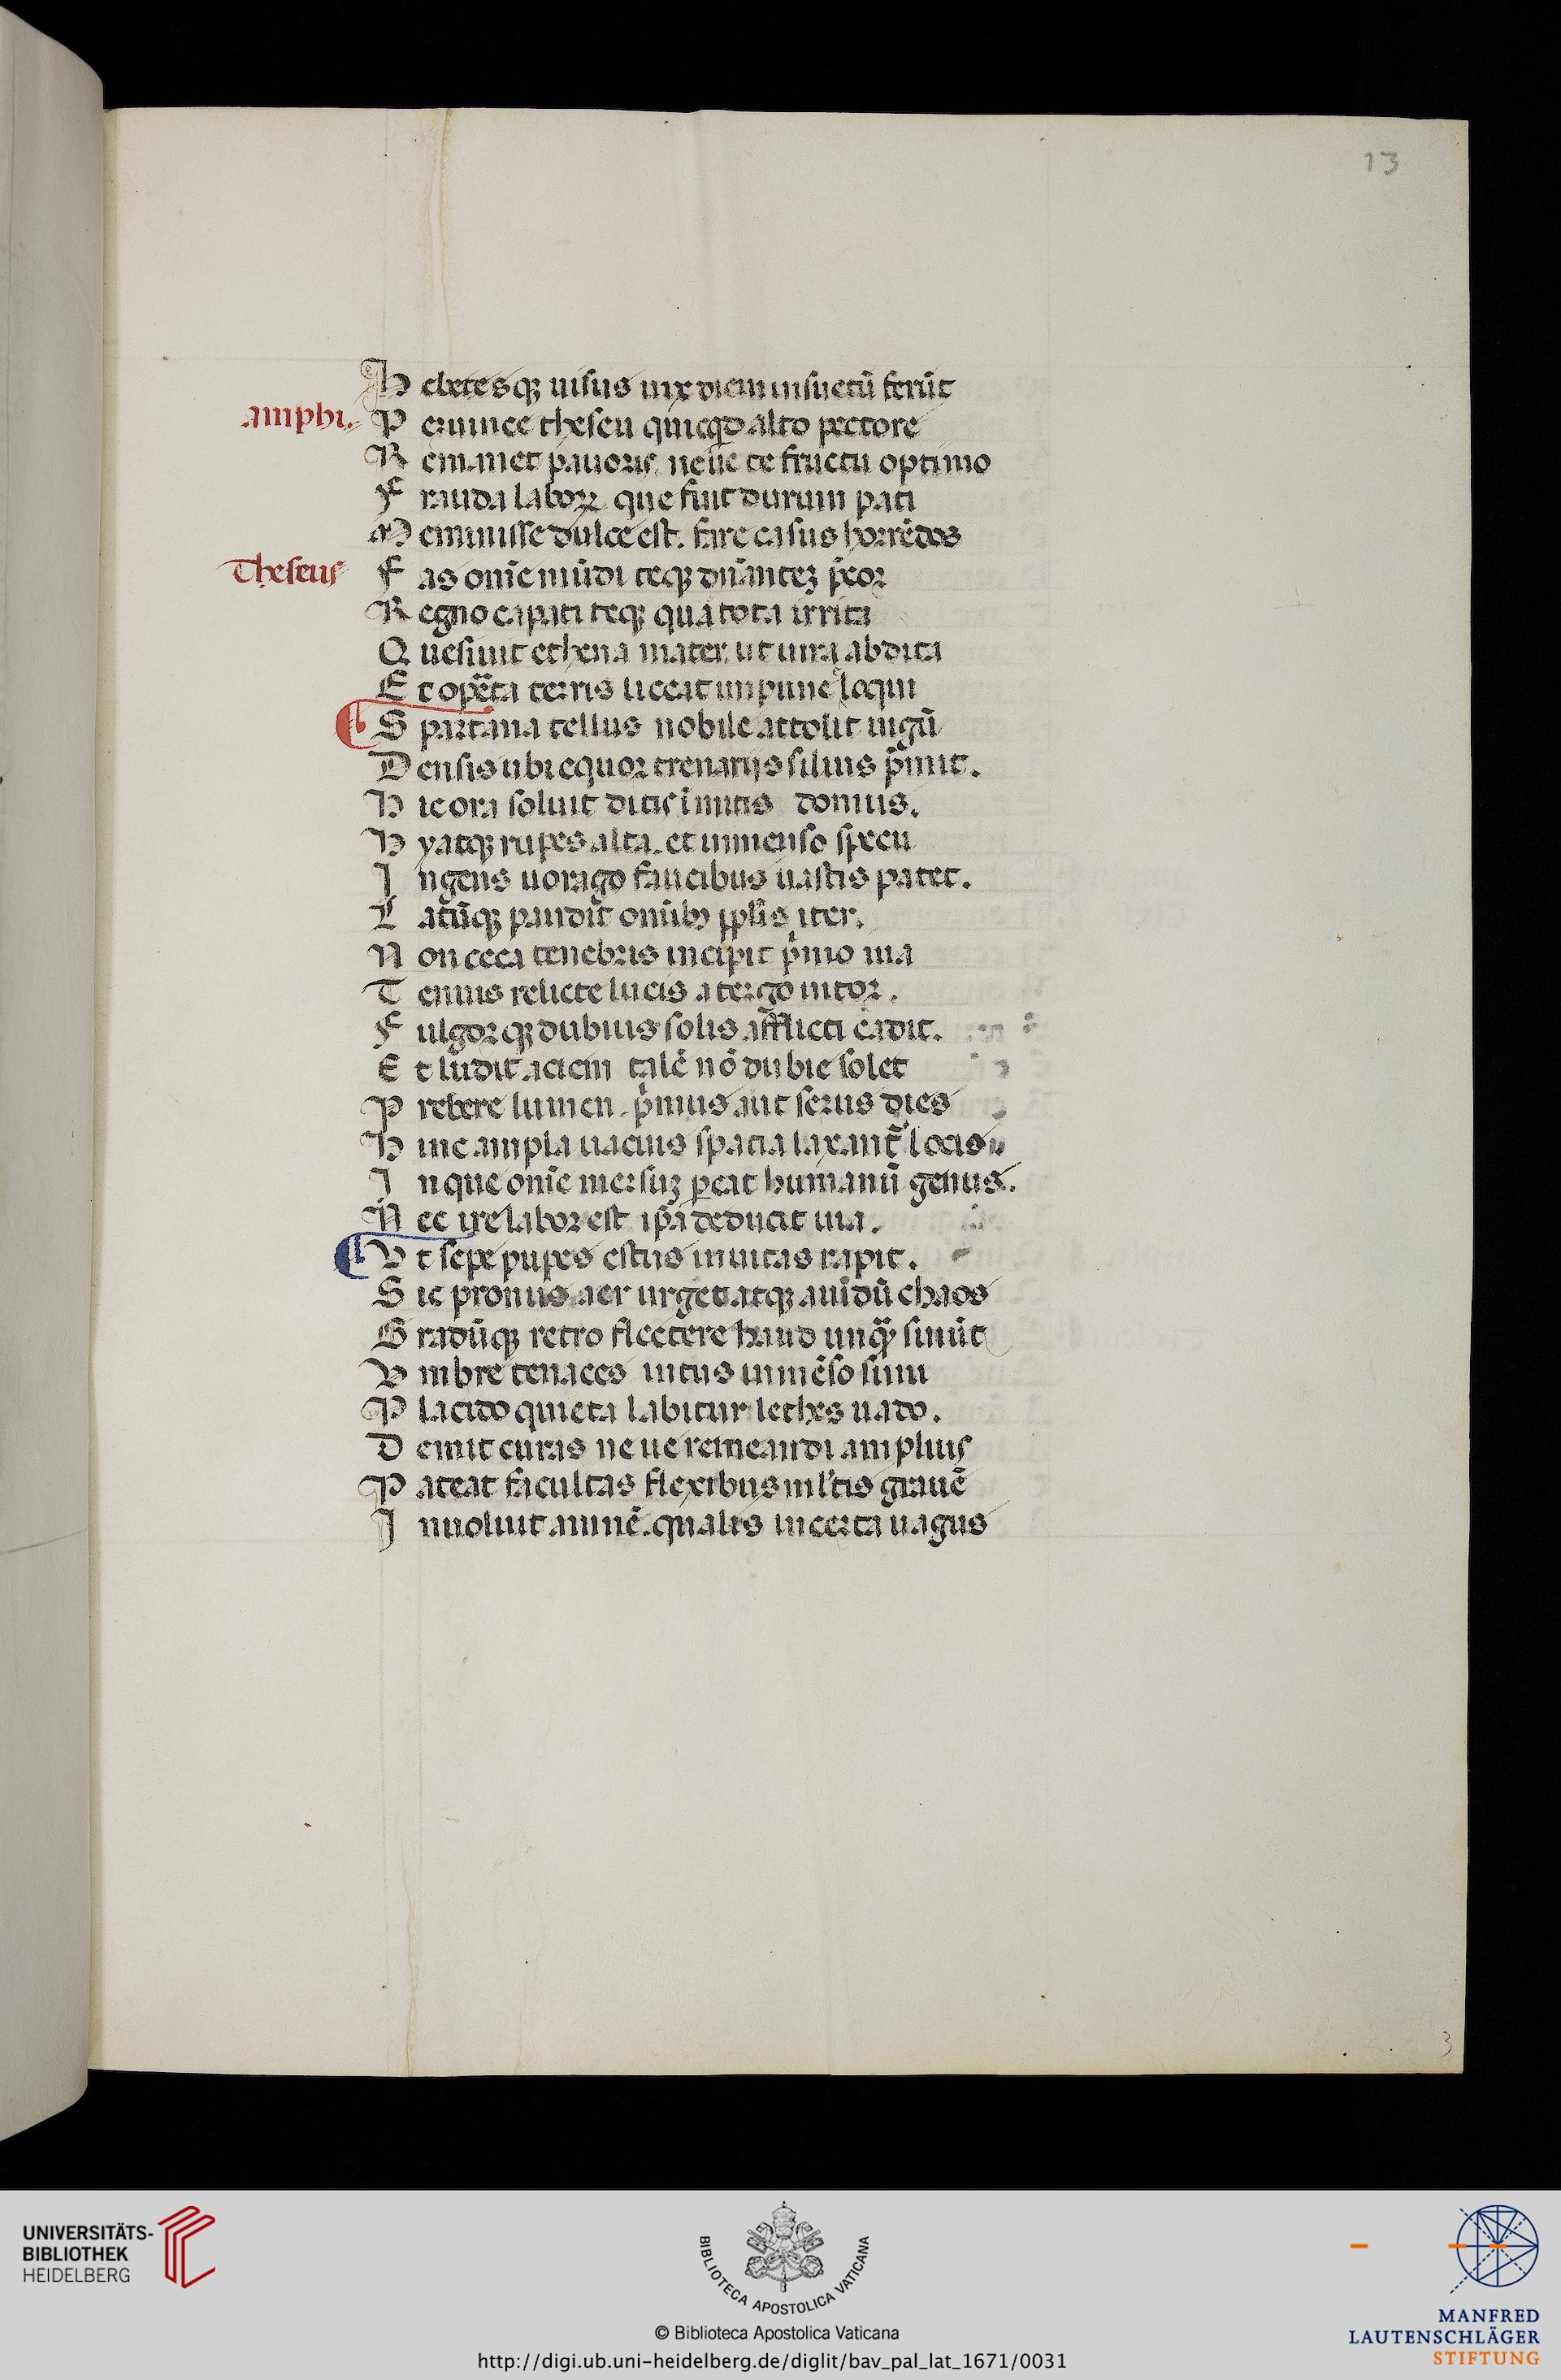 13
H ebetesqꝫ uisus uix diem insuetū ferūt
amphi. P eruince theseu quicqd alto pectore
R emanet pauoris neue te fructu optimo
F rauda laborꝝ que fuit durum pati
M eminisse dulce est. fare casus horrēdos
Theseus F as om̄e mūdi teqꝫ dn̄antez p̄cor
R egno capaci teqꝫ quā tota irrita
Q uesiuit ethena mater. ut iura abdita
E t op̄ta terris liceat impune loqui
S partana tellus nobile attolit iugū
D ensis ubi equor trenarijs siluis p̄mit.
H ic ora soluit ditis īuitis domus.
H yatqꝫ rupes alta. et inmenso specu
I ngens uorago faucibus uastis patet.
L atūqꝫ pandit om̄ibꝫ pplīs iter.
N on ceca tenebris incipit p̄mo uia
T enuis relicte lucis a tergo nitor.
F ulgorqꝫ dubius solis afflicti cadit.
E t ludit aciem talē nō dubie solet
P rebere lumen. p̄mus aut serus dies
H inc ampla uacuis spacia laxant̄ locis
I n que om̄e mersuꝫ pereat humanū genus.
N ec ire labor est ip̄a deducit uia.
U t sepe pupes estus inuitas rapit.
S ic pronus aer urget atqꝫ auidū chaos
G radūqꝫ retro flectere haud unqꝫ sinūt
U mbre tenaces intus inmēso sinu
P lacido quieta labitur lethes uado.
D emit curas neue remeandi amplius
P ateat facultas flexibus ml'tis grauē
I nuoluit amnē. qualis incerta uagus
3
UNIVERSITÄTS-
BIBLIOTHEK
HEIDELBERG
BIBLIOTECA APOSTOLICA VATICANA
© Biblioteca Apostolica Vaticana
http://digi.ub.uni-heidelberg.de/diglit/bav_pal_lat_1671/0031
MANFRED
LAUTENSCHLÄGER
STIFTUNG